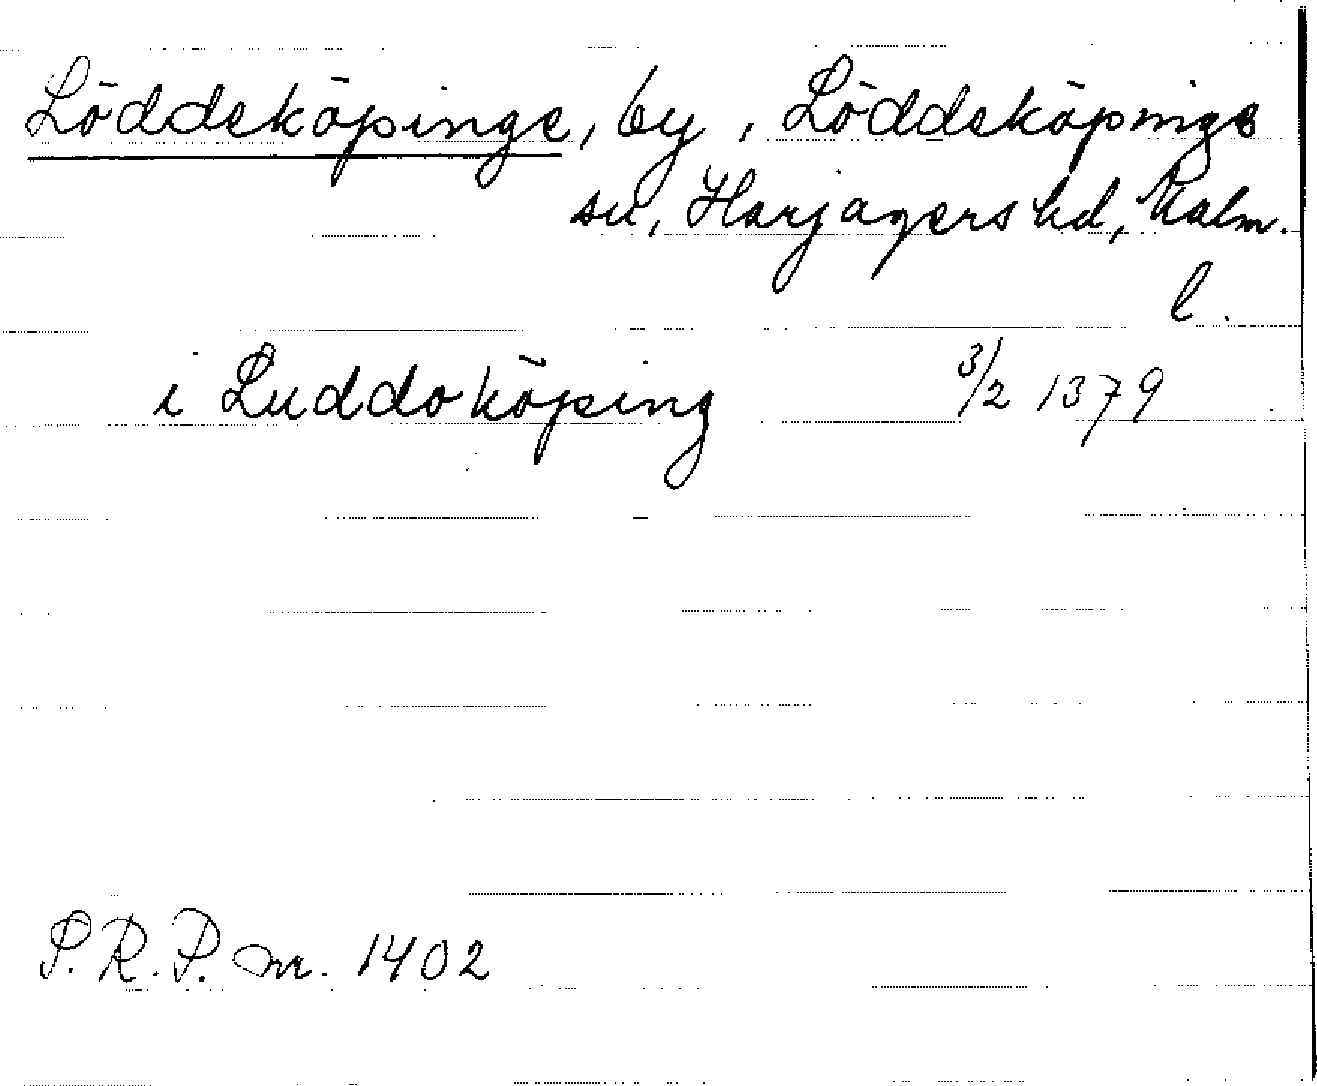 Löddeköpinge, by, Löddeköpinge
sn, Harjagers hd, Malm.
l.
i Luddoköping 3/2 1379
S.R.P. nr. 1402